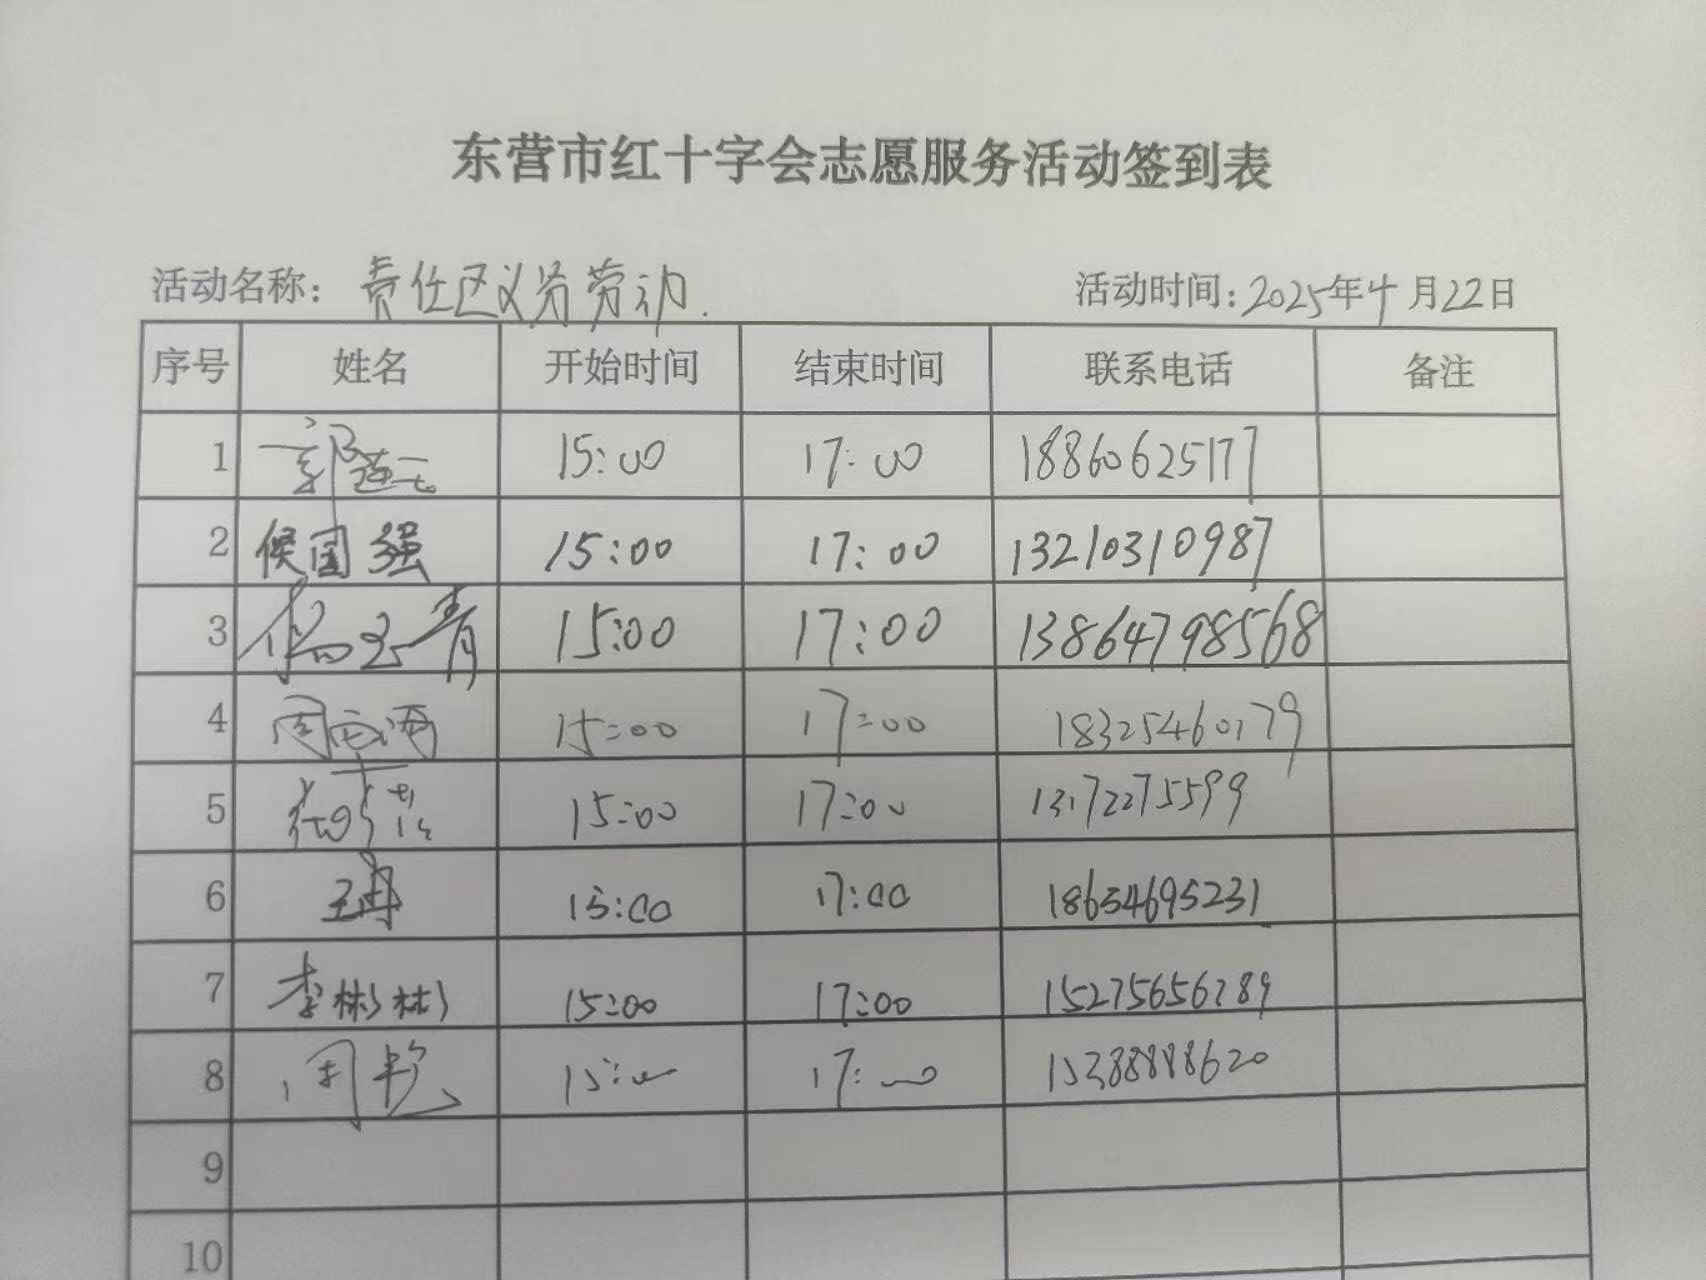 东营市红十字会志愿服务活动签到表
活动名称：责任区义务劳动. 活动时间：2025年4月22日
序号 姓名 开始时间 结束时间 联系电话 备注
1 郭莲云 15:00 17:00 18860625177
2 候国强 15:00 17:00 13210310987
3 15:00 17:00 13864798568
4 15:00 17:00 18325460179
5 15:00 17:00 13172275599
6 王冉 15:00 17:00 18654695231
7 李彬彬 15:00 17:00 15275656789
8 周艳 15:00 17:00
9
10